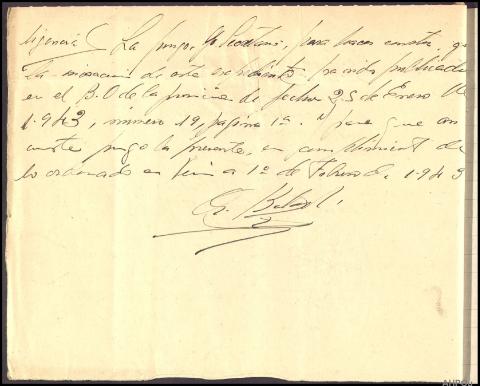 Diligencia / La pongo, yo Secretario, para hacer constar, que
la incoación de este expediente ha sido publicada
en el B.O de la provincia de fecha 25 de Enero de
1.943, número 19, página 1ª. Y para que con
conste pongo la presente, en cumplimiento de
lo ordenado en a 1º de Febrero de 1.943
AHPOu